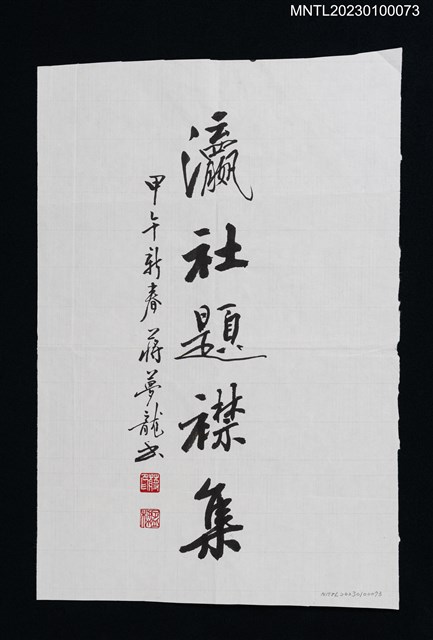 MNTL20230100073
瀛社題襟集
甲午新春 蔣夢龍書
MNTL20230100073